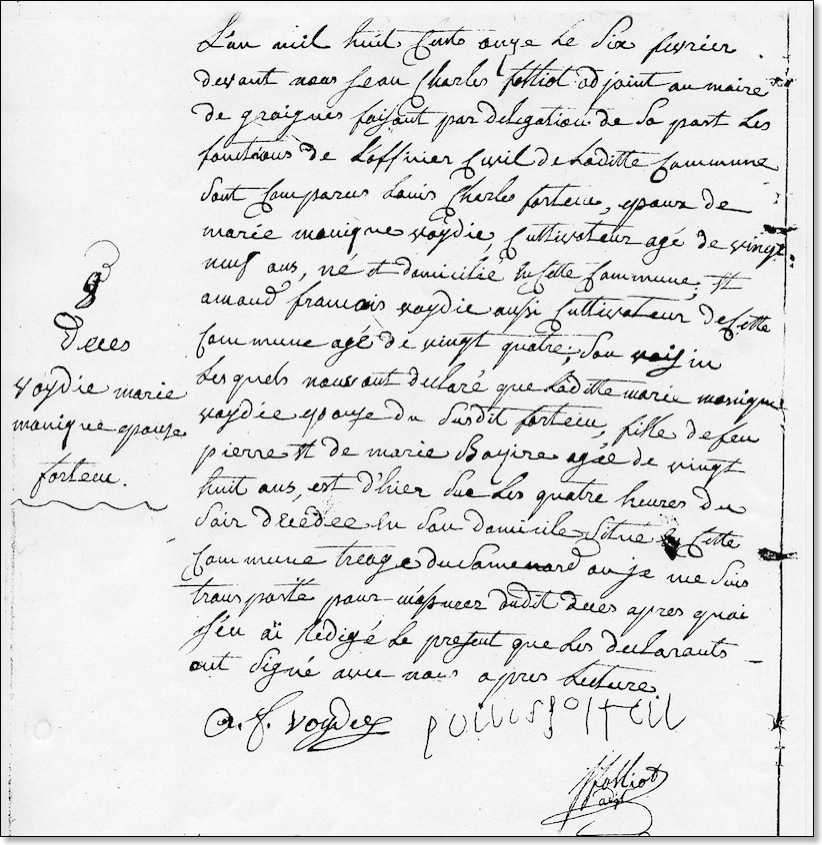 L'an mil huit cents onze le six fevrier
devant nous Jean Charles folliot adjoint au maire
de graignes faisant par delegation de sa part les
fonctions de L'officier Civil de Laditte Commune
sont Comparus Louis Charles fortein, epoux de
mariée monique voydie, Cultivateur agé de vingt
neuf ans, né et domicilié en Cette Commune, et
amand francois voydie aussi Cultivateur de Cette
Commune agé de vingt quatre, son voisin
Lesquels nous ont declaré que Laditte marie monique
voydie epouse du susdit fortein, fille de feu
pierre et de marie agée de vingt
huit ans, est d'hier sur les quatre heures du
soir decedee en son domicile situé Cette
Commune ou je me suis
transporté pour m'assurer dudit deces apres quoi
J'en aï redigé le present que les declarants
ont signé avec nous apres Lecture
8
Deces
voydie marie
monique epouse
fortein.
a. f. voydie
folliot
adjt